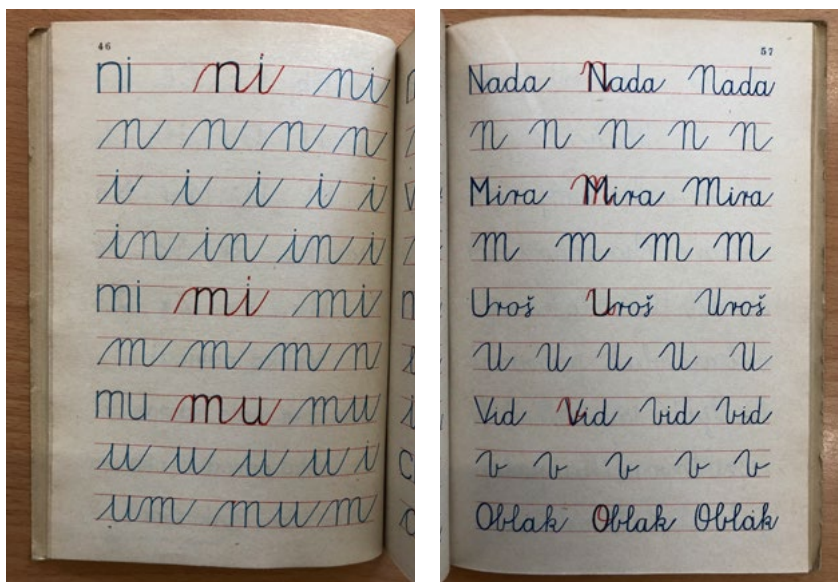 46
ni ni ni
n n n n
i i i i i
in in in i
mi mi mi
m m m n
mu mu mu
u u u u i
um mum
57
Nada Nada Nada
N N N N N
Mira Mira Mira
M M M M
Uroš Uroš Uroš
U U U U U
Vid Vid Vid Vid
V V V V V
Oblak Oblak Oblak